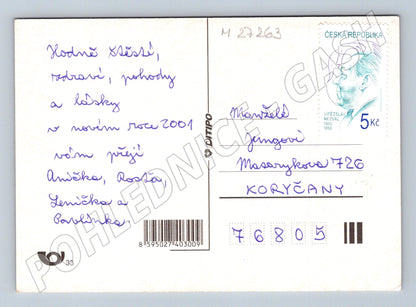 M 27263
ČESKÁ REPUBLIKA
5 Kč
Hodně štěstí,
zdraví, pohody
a lásky
v novém roce 2001
vám přejí
Anička, Rosťa,
Lenička a
Pavlínka.
Manželé
Jungovi
Masarykova 726
KORYČANY
76805
DITIPO
33
8 595027 403009
POHLEDNICE - GASH